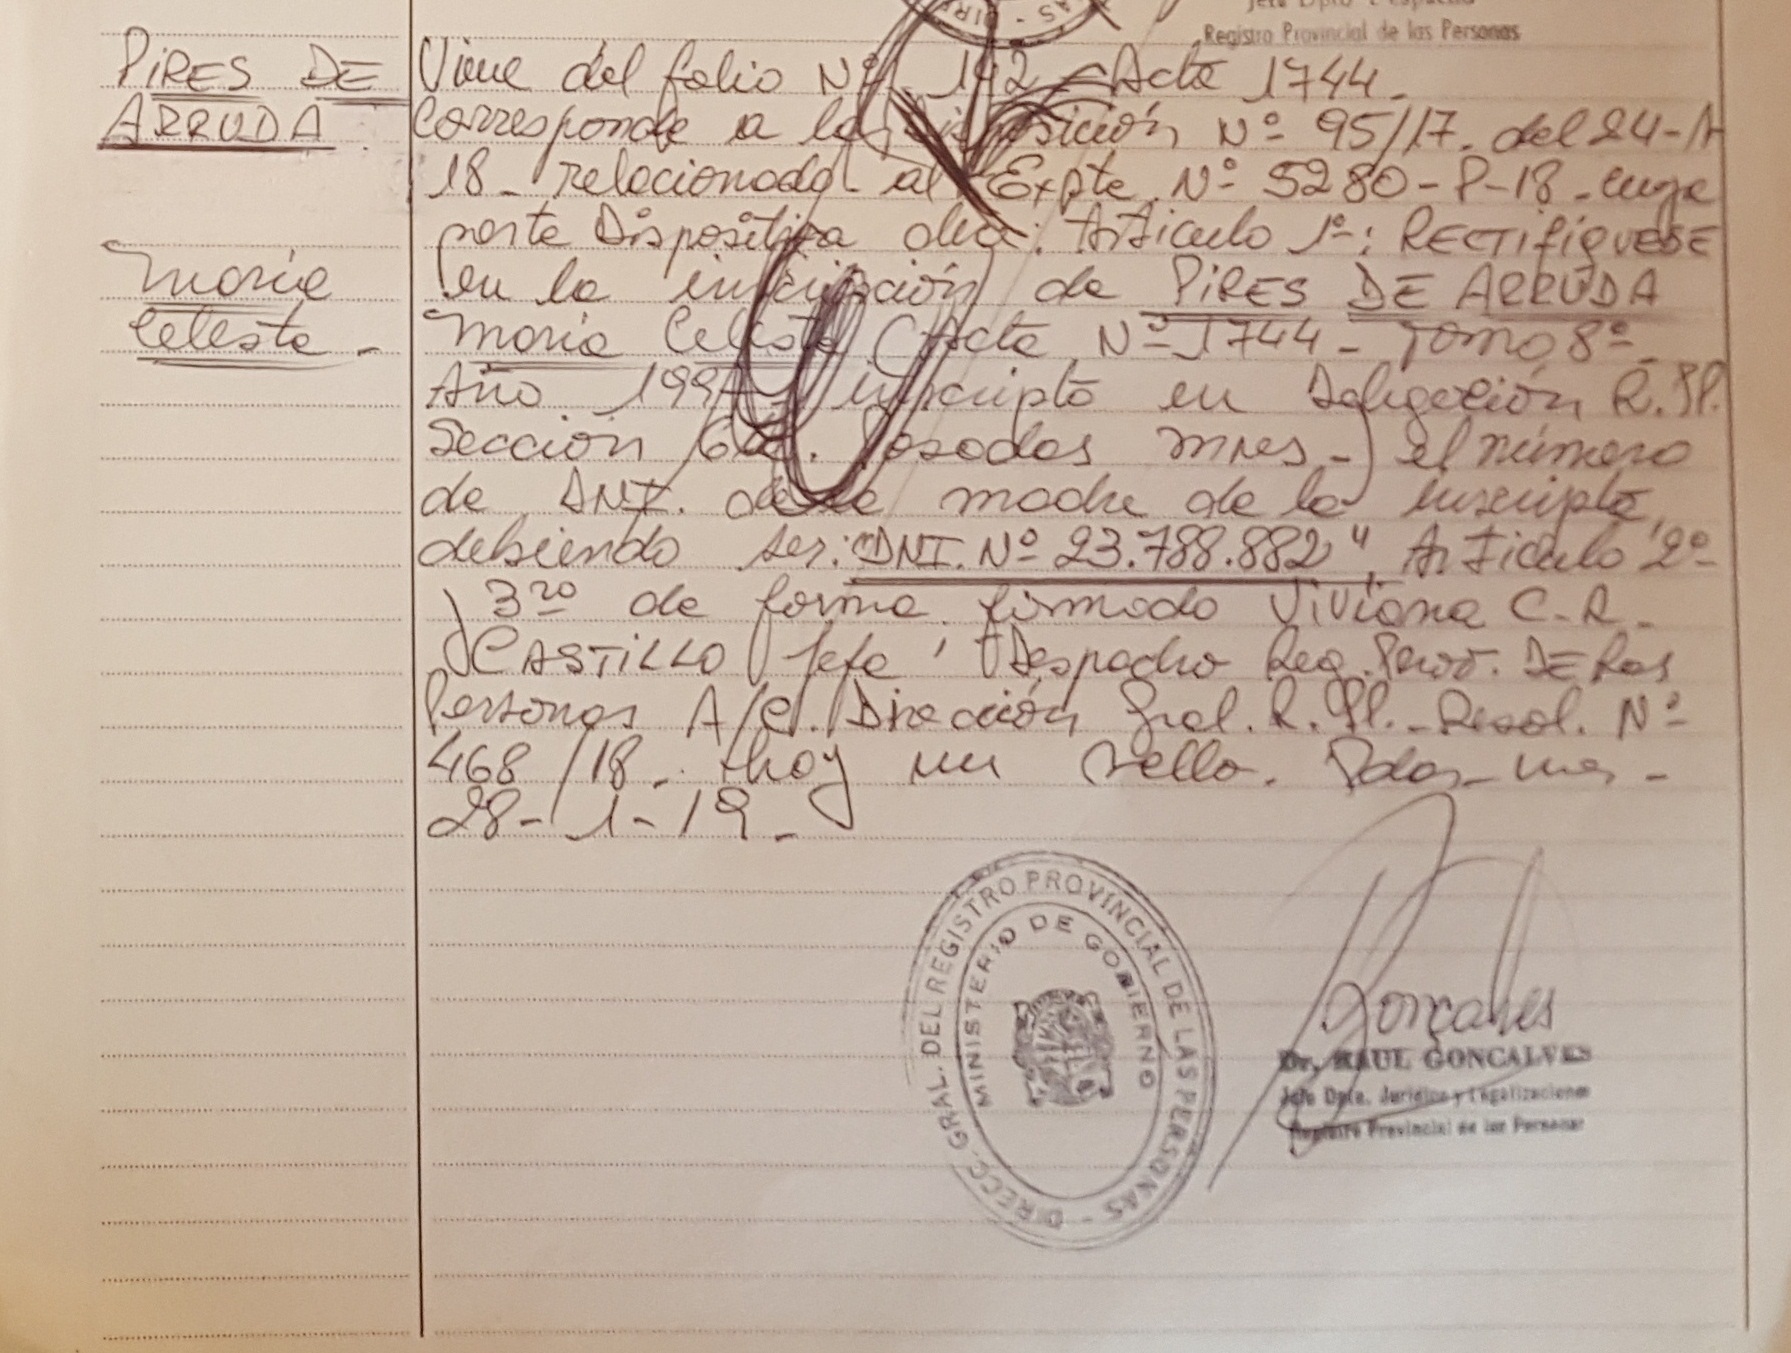 Registro Provincial de las Personas
PIRES DE
ARRUDA
María
Celeste -
Viene del folio Nº 142 - Acta 1744.
Corresponde a la Disposición Nº 95/17. del 24-
18 - relacionada al Expte. Nº 5280-P-18 - cuya
parte Dispositiva dice: Artículo 1º: RECTIFIQUESE
en la inscripción de PIRES DE ARRUDA
María Celeste (Acta Nº 1744 - Tomo 8º -
Año 199 inscripta en Delegación R. P.
Sección 6ta. Posadas Mnes -) el número
de DNI. de la madre de la inscripta,
debiendo ser: "DNI. Nº 23.788.882", Artículo 2º
y 3ro de forma. firmado Viviana C. R.
CASTILLO Jefe Despacho Reg. Prov. DE Las
Personas A/C. Dirección Gral. R. P. - Resol. Nº
468/18. - Hay un sello. Pdas - Mnes -
28-1-19 -
DIRECC. GRAL. DEL REGISTRO PROVINCIAL DE LAS PERSONAS -
MINISTERIO DE GOBIERNO
Gonçalves
Dr. RAUL GONCALVES
Jefe Dpto. Jurídico y Legalizaciones
Registro Provincial de las Personas